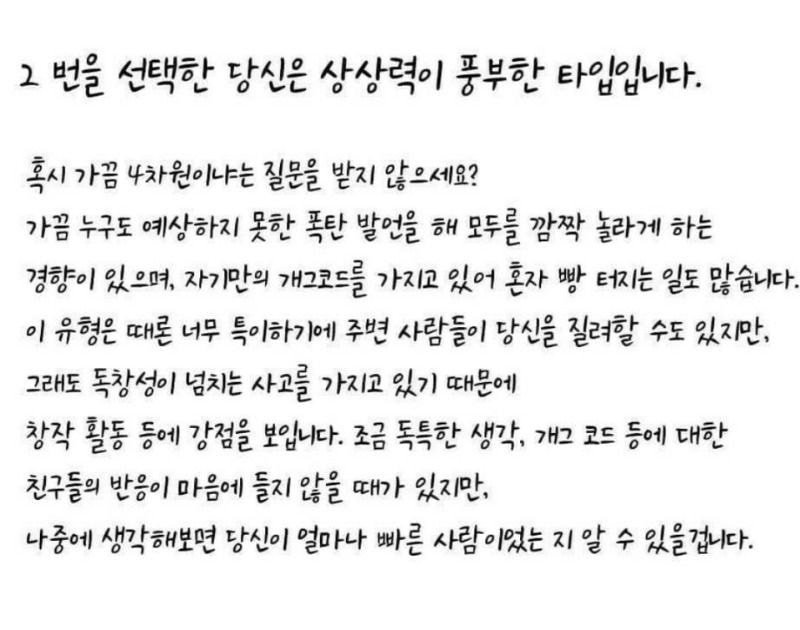 2 번을 선택한 당신은 상상력이 풍부한 타입입니다.
혹시 가끔 4차원이냐는 질문을 받지 않으세요?
가끔 누구도 예상하지 못한 폭탄 발언을 해 모두를 깜짝 놀라게 하는
경향이 있으며, 자기만의 개그코드를 가지고 있어 혼자 빵 터지는 일도 많습니다.
이 유형은 때론 너무 특이하기에 주변 사람들이 당신을 질려할 수도 있지만,
그래도 독창성이 넘치는 사고를 가지고 있기 때문에
창작 활동 등에 강점을 보입니다. 조금 독특한 생각, 개그 코드 등에 대한
친구들의 반응이 마음에 들지 않을 때가 있지만,
나중에 생각해보면 당신이 얼마나 빠른 사람이었는 지 알 수 있을겁니다.